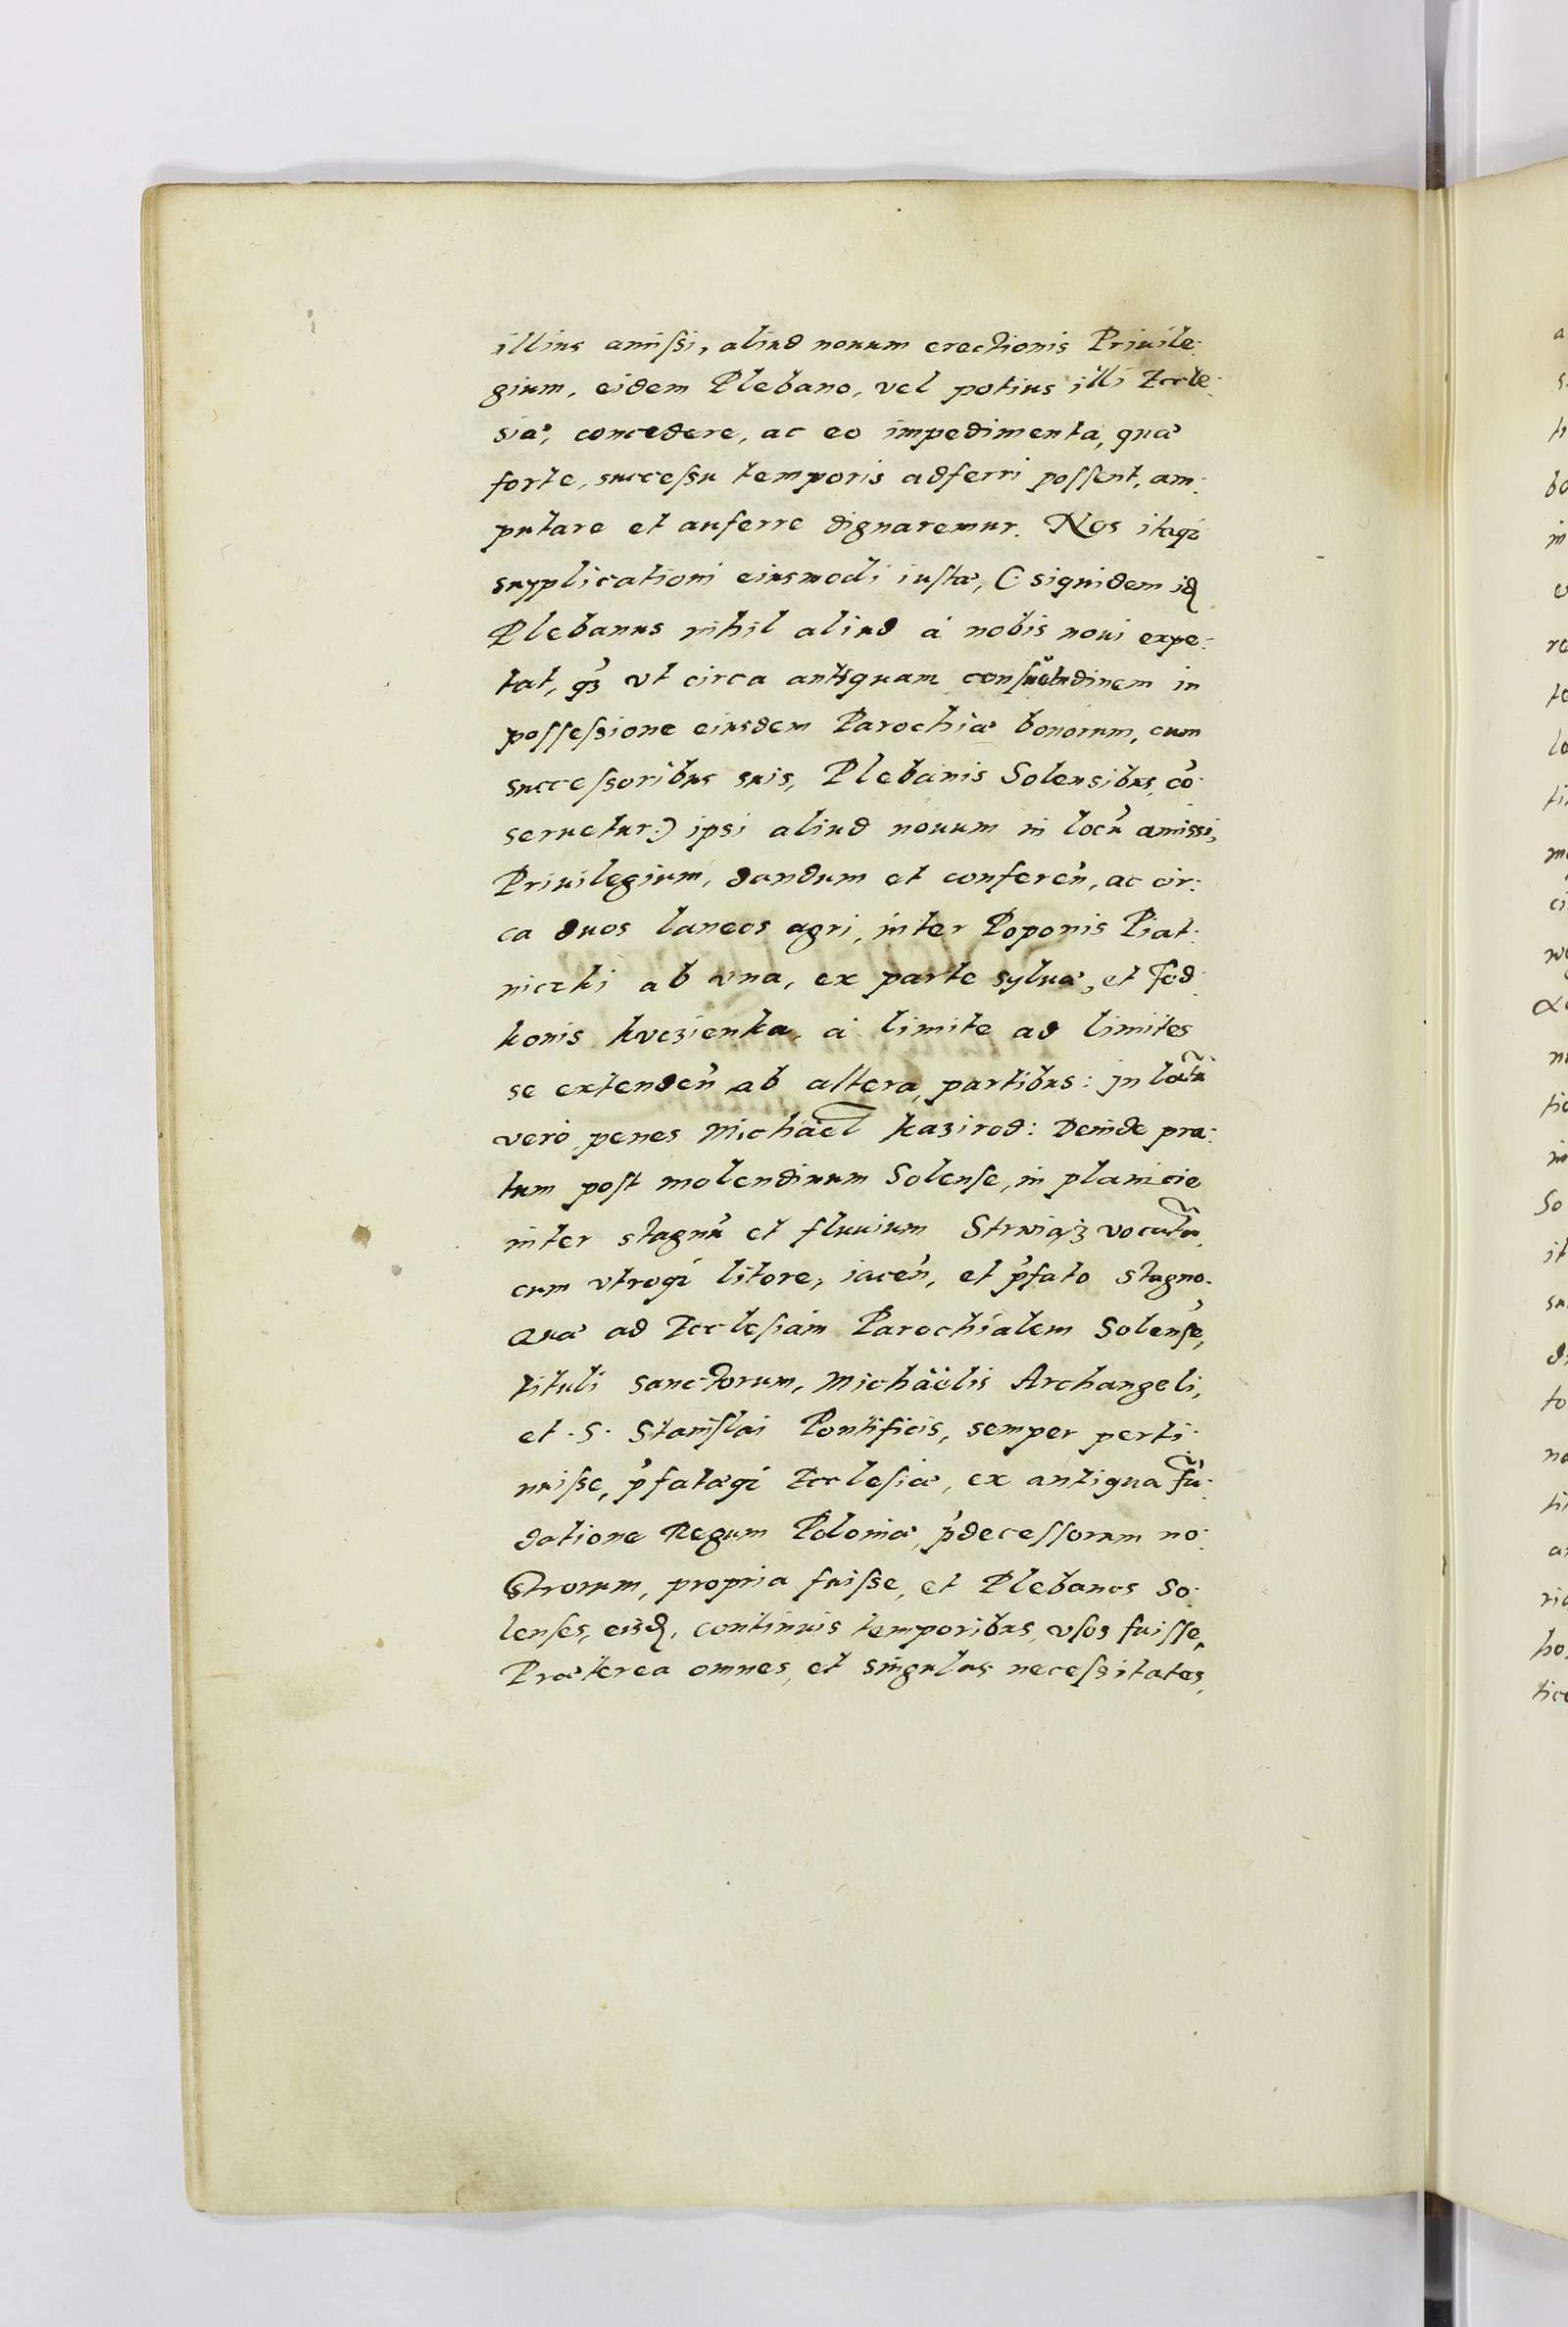 illius amiſsi, aliud nouum erectionis Priuile-
gium, eidem Plebano, vel potius illi Eccle-
siæ, concedere, ac eo impedimenta, quæ
forte, succeſsu temporis adferri poſſent, am-
putare et auferre dignaremur. Nos itaq́;
supplicationi eiusmodi iuſtæ, (: siquidem id
Plebanus nihil aliud à nobis noui expe-
tat, q̃ vt circa antiquam conſuetudinem in
poſſeſsione eiusdem Parochiæ bonorum, cum
succeſsoribus suis, Plebanis Solensibus, cõ-
seruetur:) ipsi aliud nouum in locũ amissi,
Priuilegium, dandum et conferen̄, ac cir-
ca duos laneos agri, inter Poponis Piat-
niczki ab vna, ex parte syluæ, et Fed-
konis kvczienka, à limite ad limites
se extenden̄ ab altera, partibus: in lat̃u
vero penes Michäel kazirod: Deinde pra-
tum post molendinum Solenſe, in planicie
inter stagnũ et fluuium Strwiąż vocat̃u,
cum vtroq́; litore, iacen̄, et p̃fato stagno.
Quæ ad Eccleſiam Parochialem Solenſẽ,
tituli sanctorum, Michäelis Archangeli,
et .S. Staniſlai Pontificis, semper perti-
nuiſse, p̃fatæq́; Eccleſiæ, ex antiqua fũ-
datione Regum Poloniæ, p̃deceſſorum no-
strorum, propria fuiſse, et Plebanos So-
lenſes, eisd, continuis temporibus, vſos fuiſſe,
Præterea omnes, et singulas neceſsitates,